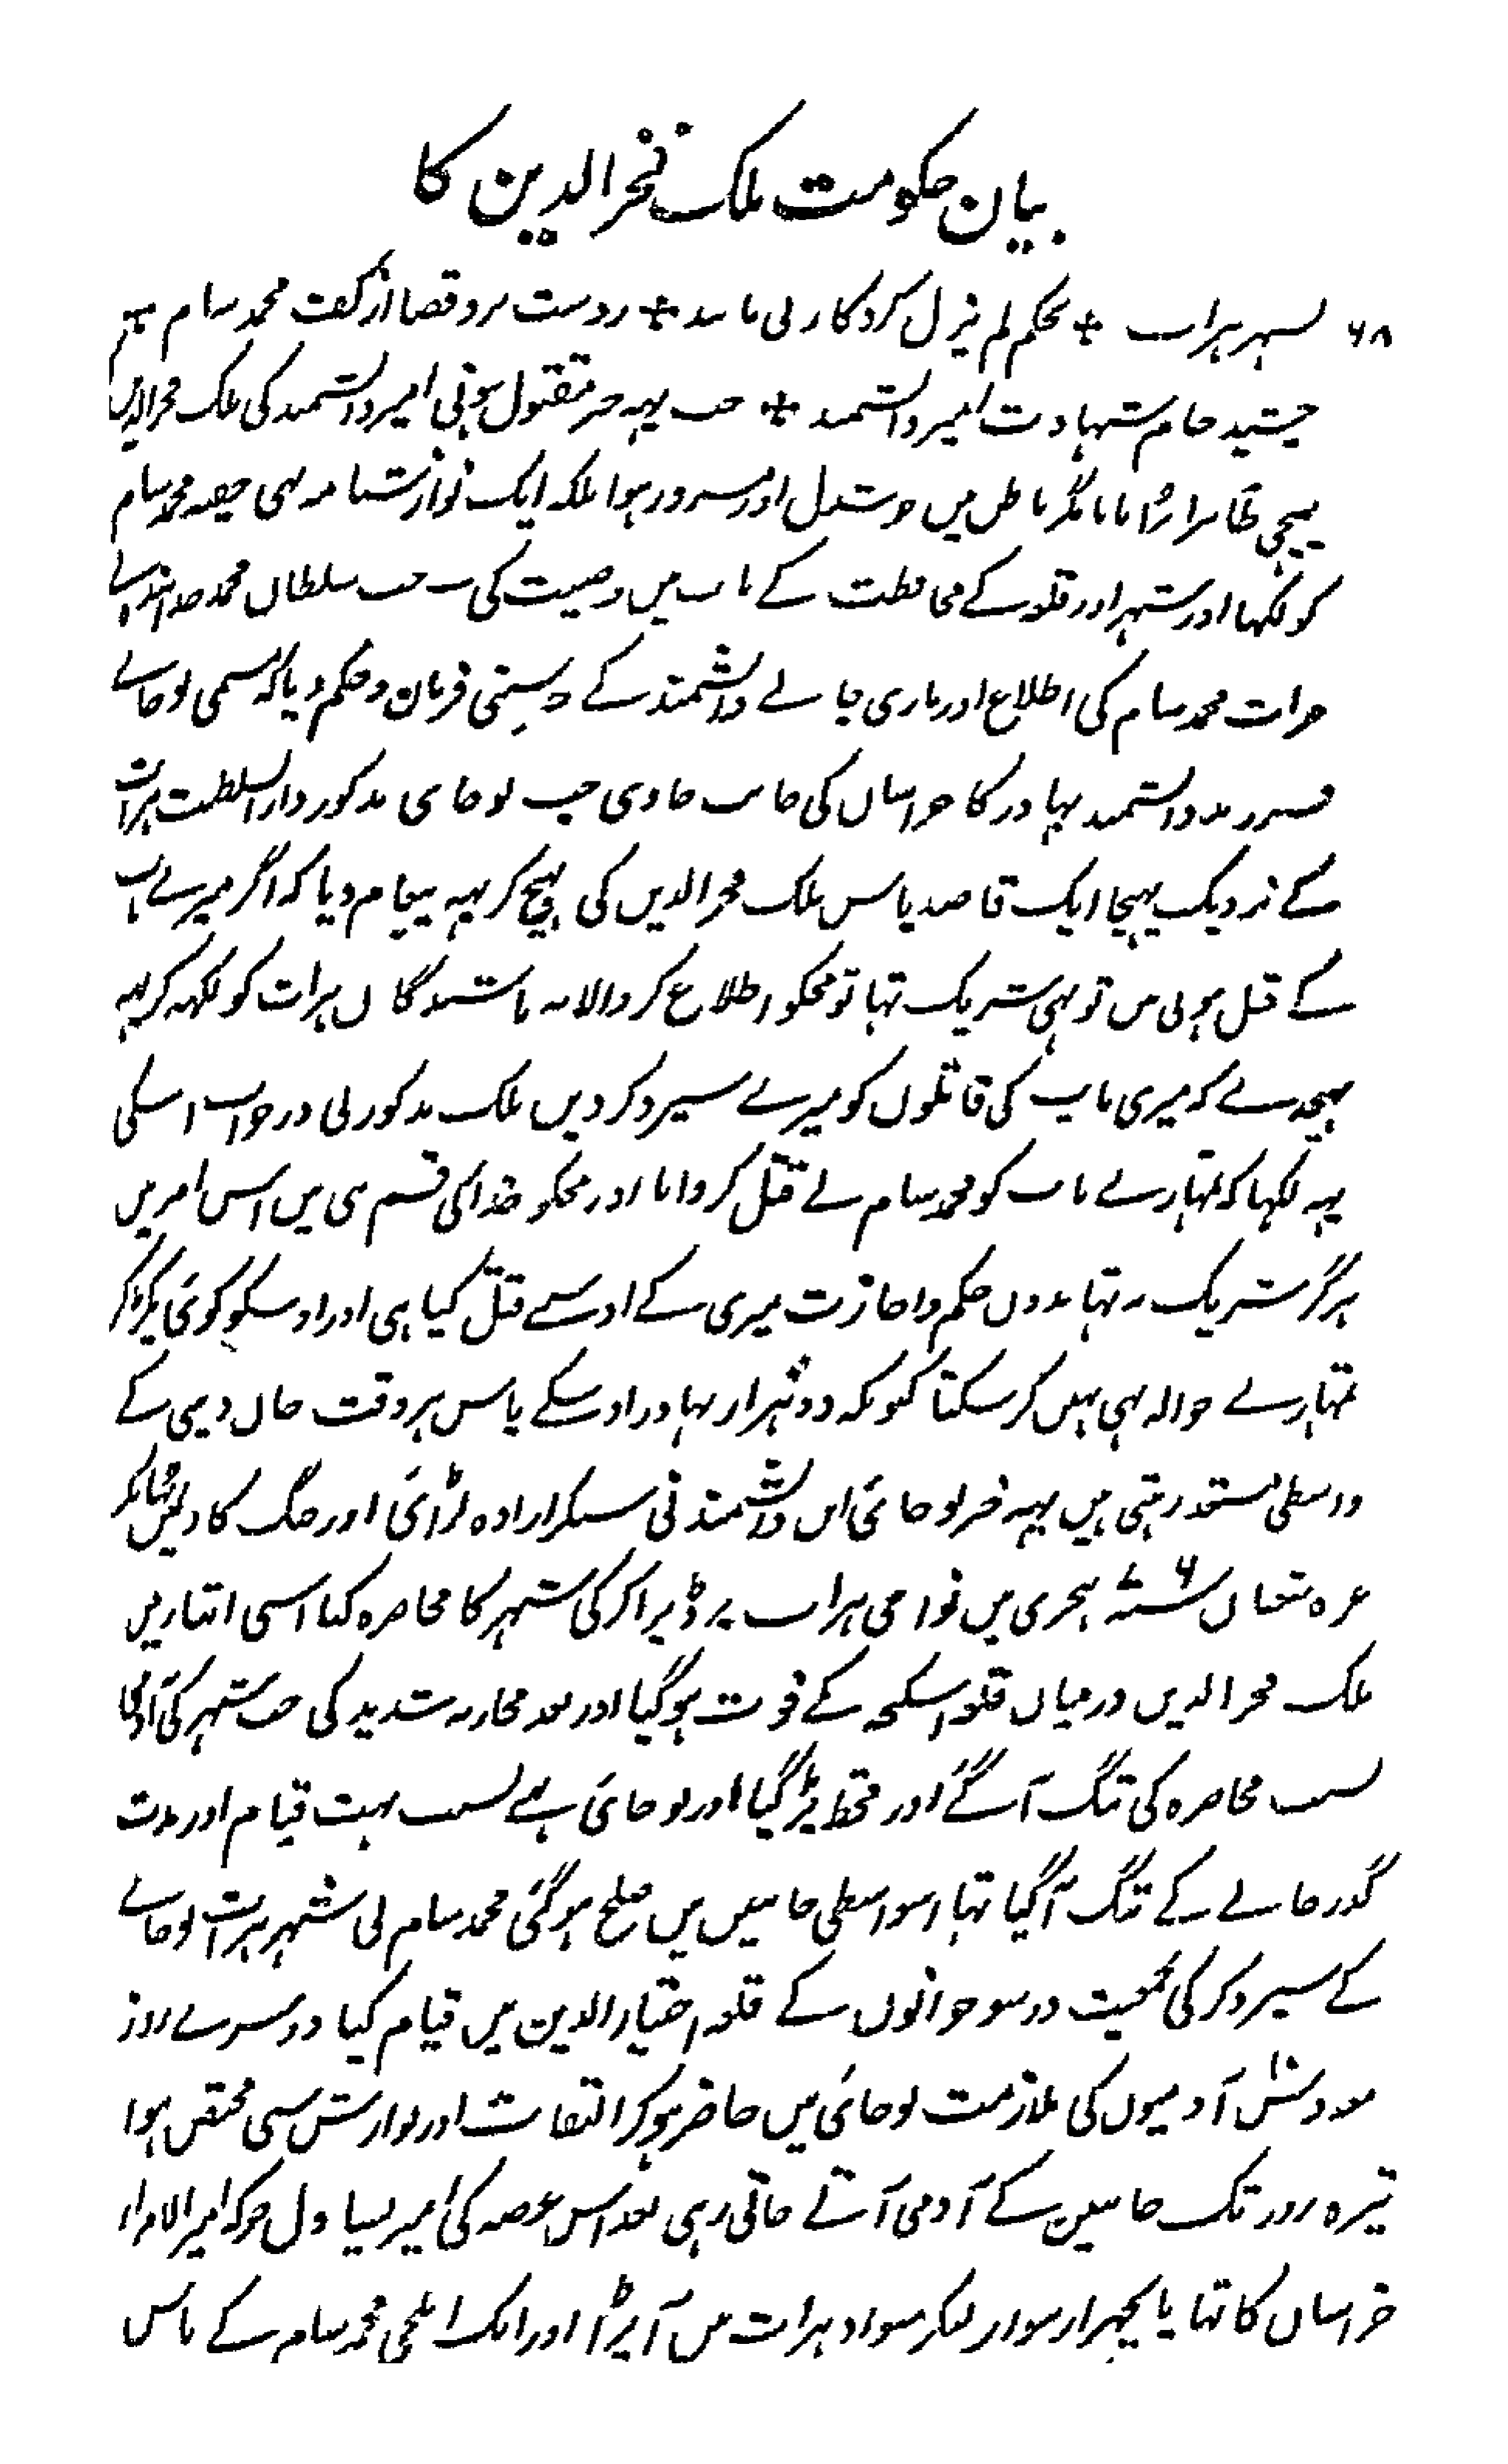 بیان حکومت ملک فخرالدین کا
۶۸ بشہر ہراب ٭ بحکم لم یزل کردکار بی مانند ٭ بدست قضا از کف محمد سام
چشید جام شہادت امیر دانشمند ٭ جب یہہ خبر مقتول ہونی امیر دانشمند کی ملک فخرالدین
پہنچی ظاہرا بُرا مانا مگر باطن میں خوشدل اور مسرور ہوا بلکہ ایک نوازشنامہ بہی خفیہ محمد سام
کو لکہا اور شہر اور قلعہ کے محافظت کے باب میں وصیت کی جب سلطان محمد خدابندہ نے
جرات محمد سام کی اطلاع اور ماری جانے دانشمند کے سنی فرمان و حکم دیا کہ مسمی لوجای
فرزند دانشمند بہادر کا خراسان کی جانب جاوی جب لوجای مذکور دارالسلطنت ہرات
کے نزدیک پہنچا ایک قاصد پاس ملک فخرالدین کی بہیج کر یہہ پیغام دیا کہ اگر میرے باپ
کے قتل ہونی میں تو بہی شریک تہا تو مجکو اطلاع کر والا نہ باشندگان ہرات کو لکہہ کر یہہ
بہیجدے کہ میری باپ کی قاتلوں کو میرے سپرد کر دیں ملک مذکور نی در جواب اسکی
یہہ لکہا کہ تمہارے باپ کو محمد سام نے قتل کروایا اور مجکو خدا کی قسم ہی میں اس امر میں
ہرگز شریک نہ تہا بدون حکم و اجازت میری کے اوسنے قتل کیا ہی اور اوسکو کوئی پکڑ کر
تمہارے حوالہ بہی نہیں کر سکتا کیونکہ دو ہزار بہادر اوسکے پاس ہر وقت جان دینی کے
واسطی مستعد رہتی ہیں یہہ خبر لوجائی ابن دانشمند نی سنکر ارادہ لڑائی اور جنگ کا دلمیں ٹہان کر
غرہ شعبان سنہ ۷۰۶ ہجری میں نواحی ہراب پر ڈیرا کر کی شہر کا محاصرہ کیا اسی اثنا میں
ملک فخرالدین درمیان قلعہ اسکجہ کے فوت ہو گیا اور بعد محاربہ شدید کی جب شہر کی آدمی
بسبب محاصرہ کی تنگ آ گئے اور قحط پڑ گیا اور لوجائی بہی بسبب بہت قیام اور مدت
گذر جانے کے تنگ آ گیا تہا اسواسطی جانبین میں صلح ہو گئی محمد سام نی شہر ہرات لوجای
کے سپرد کر کی بمعیت دو سو جوانوں کے قلعہ اختیارالدین میں قیام کیا دوسرے روز
معہ دس آدمیوں کی ملازمت لوجائی میں حاضر ہو کر التفات اور نوازش سی مختص ہوا
تیرہ روز تک جانبین کے آدمی آتے جاتی رہی بعد اس عرصہ کی امیر یساول جو کہ امیرالامرا
خراسان کا تہا پانچہزار سوار لیکر سواد ہرات میں آ پڑا اور ایک ایلچی محمد سام کے پاس